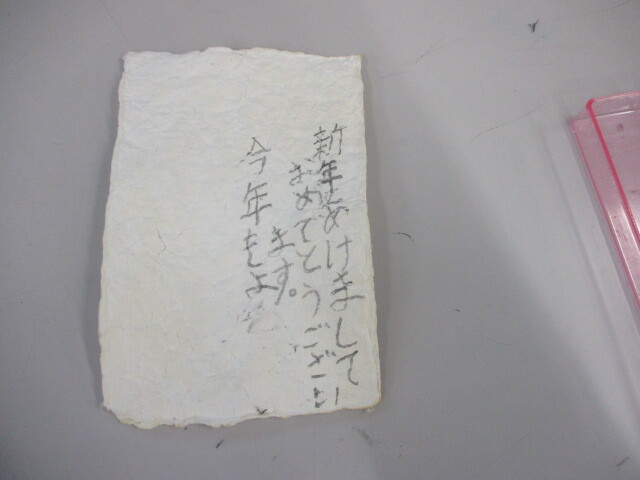 新年あけまして
おめでとうござい
ます。
今年もよ